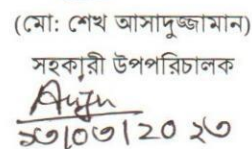 (মো: শেখ আসাদুজ্জামান)
সহকারী উপপরিচালক
১৩|০৩|20২৩